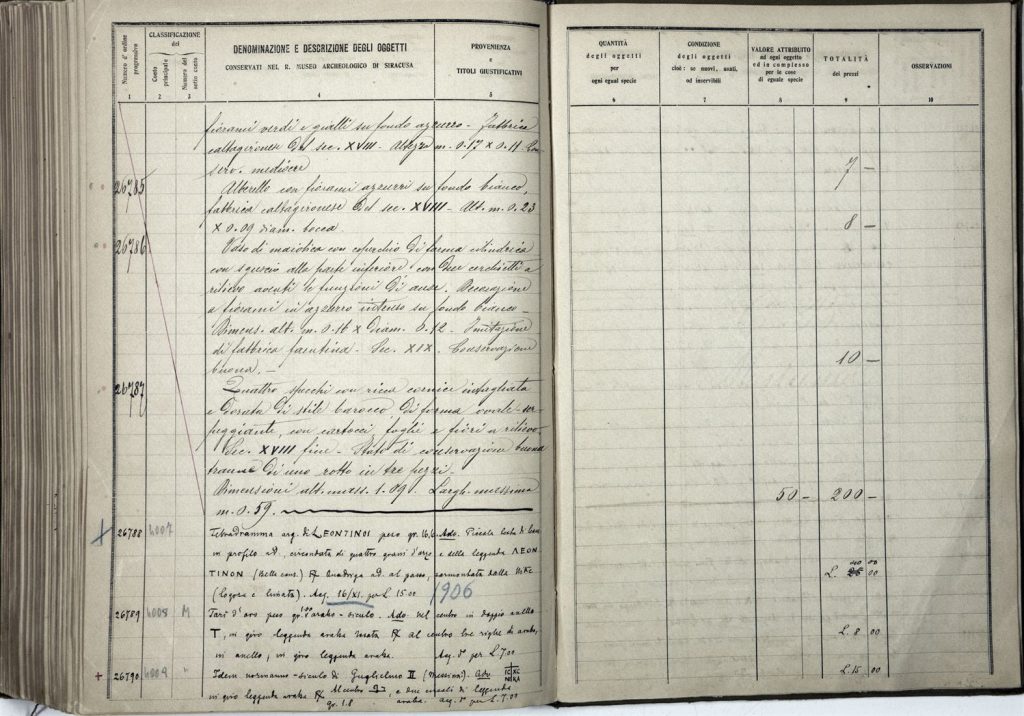 Numero d'ordine progressivo
CLASSIFICAZIONE del
Conto principale
Numero del sotto conto
DENOMINAZIONE E DESCRIZIONE DEGLI OGGETTI
CONSERVATI NEL R. MUSEO ARCHEOLOGICO DI SIRACUSA
PROVENIENZA
e
TITOLI GIUSTIFICATIVI
1 2 3 4 5
fiorami verdi e gialli su fondo azzurro - Fabbrica
caltagironese del sec. XVIII - Altezza m. 0.17 x 0.11 Con-
serv. mediocre
26785
Alberello con fiorami azzurri su fondo bianco,
fabbrica caltagironese del sec. XVIII - Alt. m. 0.23
x 0.09 diam. bocca
26786
Vaso di maiolica con coperchio di forma cilindrica
con sguscio alla parte inferiore, con due cerchietti a
rilievo aventi le funzioni di anse. Decorazione
a fiorami in azzurro intenso su fondo bianco -
Dimens. alt. m. 0.16 x diam. 0.12 - Imitazione
di fabbrica faentina - Sec. XIX. Conservazione
buona. -
26787
Quattro specchi con ricca cornice intagliata
e dorata di stile barocco, di forma ser-
peggiante, con cartocci foglie e fiori a rilievo -
Sec. XVIII fine - Stato di conservazione buona
tranne di uno rotto in tre pezzi -
Dimensioni alt. mass. 1.09. Largh. massima
m. 0.59.
26788 4007 Tetradramma arg. di LEONTINOI peso gr. Ado. Piccola testa di
in profilo ad. circondata di quattro grani d'orzo e della leggenda ΛEON
TINON (Belle cons.) R Quadriga ad. al passo, sormontata dalla Nike
(Logora e limata). Acq. 16/XI. per L 15.00 1906
26789 4008 M Tarì d'oro peso gr. arabo-siculo. Ado. Nel centro in doppio anello
T, in giro leggenda araba R al centro tre righe di arabo,
in anello, in giro leggenda araba. Acq. d° per L 7.00
26790 4009 " Idem normanno-siculo di Guglielmo II (Messina). Ado IC XC NIKA
in giro leggenda araba R Al centro e due cerchi di leggenda
gr. 1.8 araba. Acq. d° per L. 7.00
QUANTITÀ
degli oggetti
per
ogni egual specie
CONDIZIONE
degli oggetti
cioè: se nuovi, usati,
od inservibili
VALORE ATTRIBUITO
ad ogni oggetto
ed in complesso
per le cose
di eguale specie
TOTALITÀ
dei prezzi
OSSERVAZIONI
6 7 8 9 10
7 -
8 -
10 -
50 - 200 -
40 00
L. 00
L. 8 00
L. 15 00